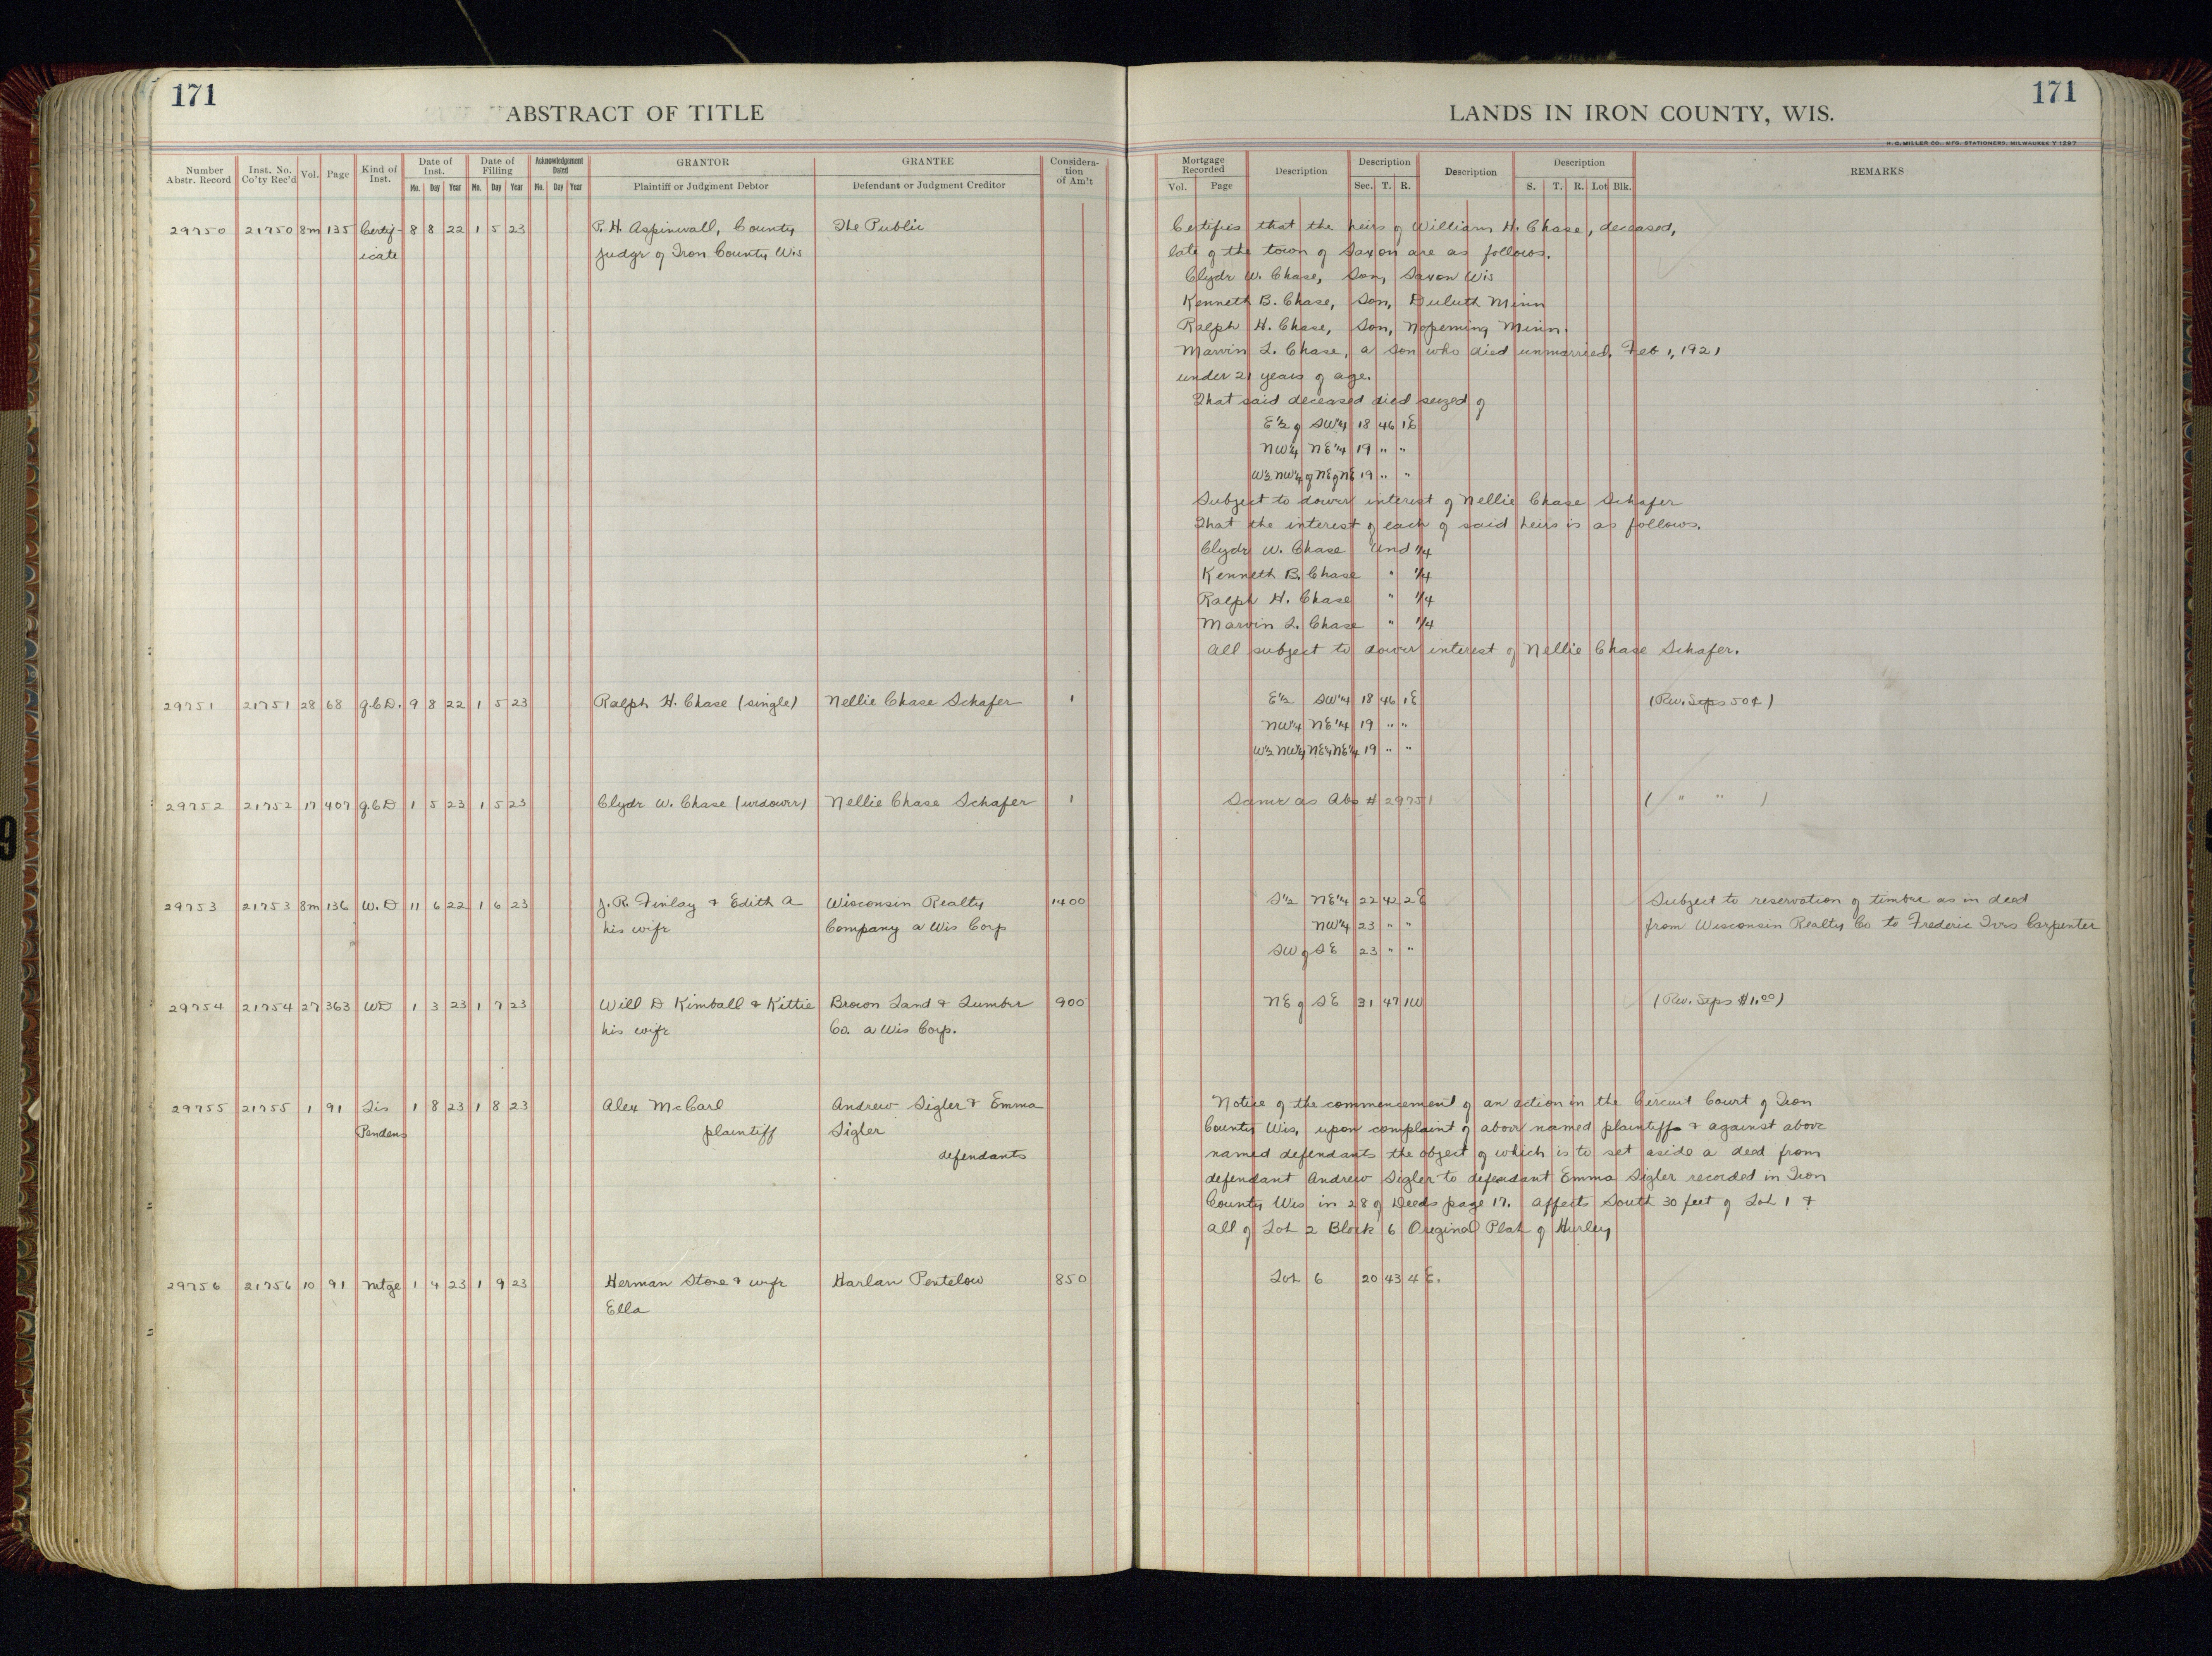 171
ABSTRACT OF TITLE
Number Abstr. Record | Inst. No. Co'ty Rec'd | Vol. | Page | Kind of Inst. | Date of Inst. Mo. Day Year | Date of Filling Mo. Day Year | Acknowledgement Dated Mo. Day Year | GRANTOR Plaintiff or Judgment Debtor | GRANTEE Defendant or Judgment Creditor | Considera-tion of Am't
29750 21750 8m 135 Certif- 8 8 22 1 5 23 P. H. Aspinwall, County The Public
icate Judge of Iron County Wis
29751 21751 28 68 Q.C.D. 9 8 22 1 5 23 Ralph H. Chase (single) Nellie Chase Schafer 1
29752 21752 17 407 Q.C.D 1 5 23 1 5 23 Clyde W. Chase (widower) Nellie Chase Schafer 1
29753 21753 8m 136 W.D 11 6 22 1 6 23 J. R. Finlay & Edith A Wisconsin Realty 1400
his wife Company a Wis Corp
29754 21754 27 363 WD 1 3 23 1 7 23 Will D Kimball & Kittie Brown Land & Lumber 900
his wife Co. a Wis Corp.
29755 21755 1 91 Lis 1 8 23 1 8 23 Alex McCarl Andrew Sigler & Emma
Pendens plaintiff Sigler
defendants
29756 21756 10 91 Mtge 1 4 23 1 9 23 Herman Stone & wife Harlan Pentelow 850
Ella
171
LANDS IN IRON COUNTY, WIS.
H. C. MILLER CO., MFG. STATIONERS, MILWAUKEE Y1297
Mortgage Recorded Vol. Page | Description | Description Sec. T. R. | Description | Description S. T. R. Lot Blk. | REMARKS
Certifies that the heirs of William H. Chase, deceased,
late of the town of Saxon are as follows.
Clyde W. Chase, Son, Saxon Wis
Kenneth B. Chase, Son, Duluth Minn
Ralph H. Chase, Son, Nopeming Minn.
Marvin L. Chase, a son who died unmarried, Feb 1, 1921
under 21 years of age.
That said deceased died seized of
E½ of SW¼ 18 46 1E
NW¼ NE¼ 19 " "
W½ NW¼ of NE of NE 19 " "
Subject to dower interest of Nellie Chase Schafer
That the interest of each of said heirs is as follows.
Clyde W. Chase Und ¼
Kenneth B. Chase " ¼
Ralph H. Chase " ¼
Marvin L. Chase " ¼
All subject to dower interest of Nellie Chase Schafer.
E½ SW¼ 18 46 1E (Rev. Stps 50¢)
NW¼ NE¼ 19 " "
W½ NW¼ NE¼ NE¼ 19 " "
Same as Abs # 29751 ( " " )
S½ NE¼ 22 42 2E Subject to reservation of timber as in deed
NW¼ 23 " " from Wisconsin Realty Co to Frederic Ives Carpenter
SW of SE 23 " "
NE of SE 31 47 1W (Rev. Stps $1.00)
Notice of the commencement of an action in the Circuit Court of Iron
County Wis, upon complaint of above named plaintiff & against above
named defendants the object of which is to set aside a deed from
defendant Andrew Sigler to defendant Emma Sigler recorded in Iron
County Wis in 28 of Deeds page 17. Affects South 30 feet of Lot 1 &
all of Lot 2 Block 6 Original Plat of Hurley
Lot 6 20 43 4 E.